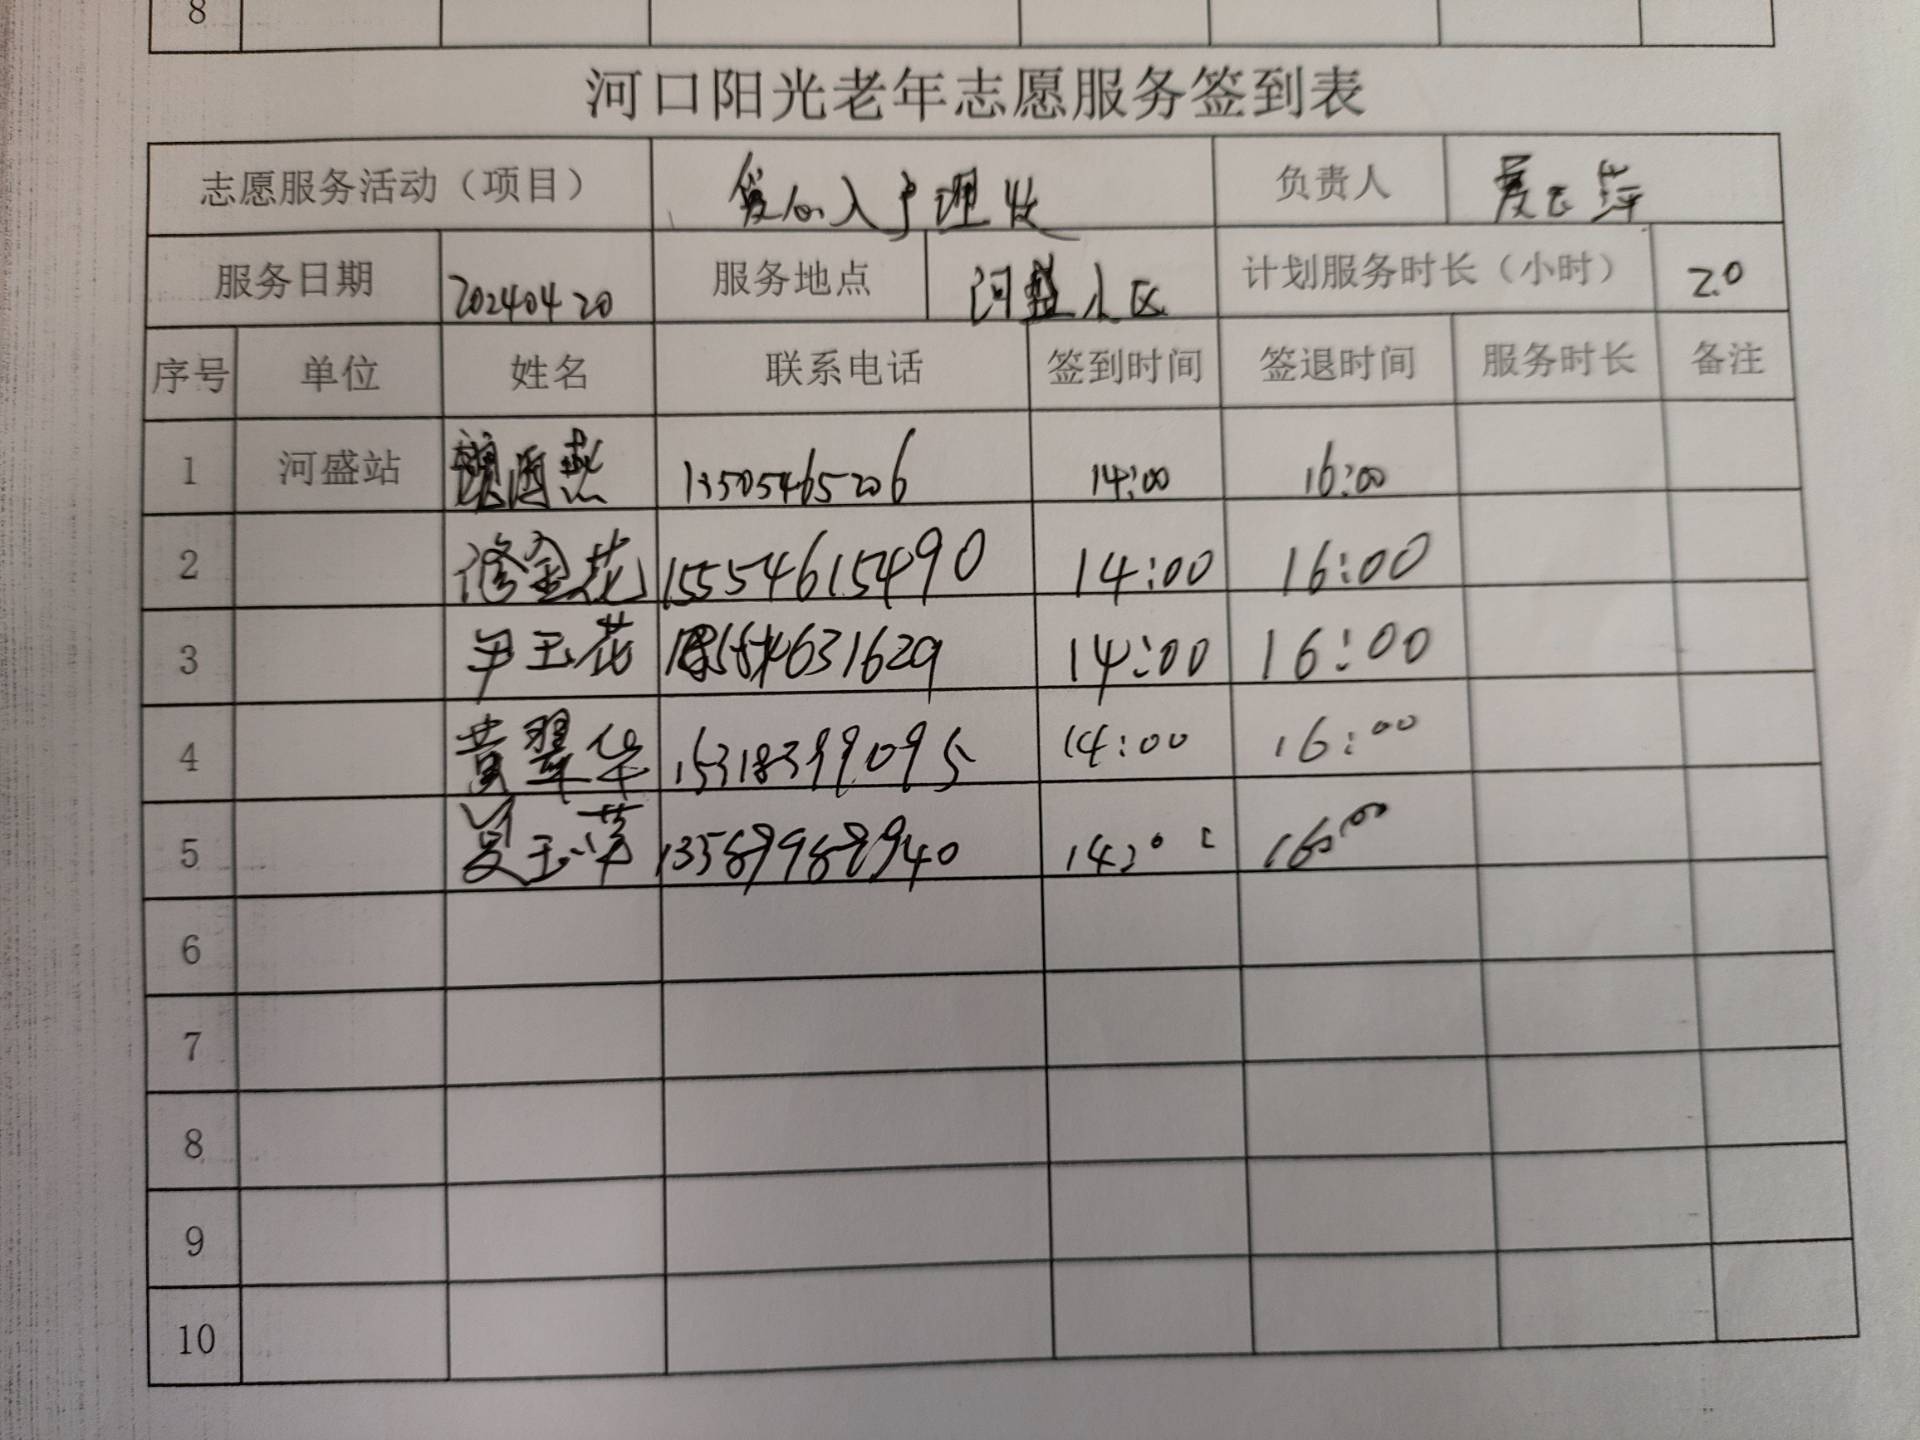 8
河口阳光老年志愿服务签到表
志愿服务活动（项目） 入户理发 负责人
服务日期 20240420 服务地点 河盛小区 计划服务时长（小时） 2.0
序号 单位 姓名 联系电话 签到时间 签退时间 服务时长 备注
1 河盛站 燕 13505465206 14:00 16:00
2 修金花 15554615490 14:00 16:00
3 尹玉花 14:00 16:00
4 黄翠华 15318399095 14:00 16:00
5 玉萍 13589968940 16:00
6
7
8
9
10